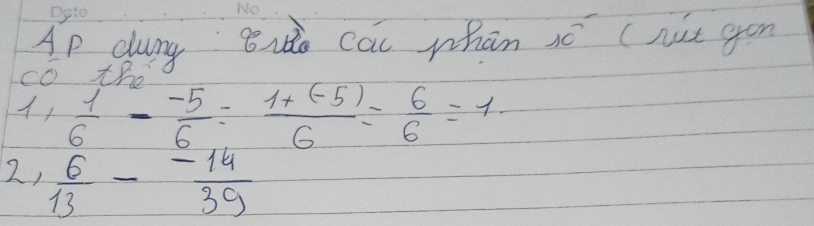 Date No
Áp dụng trừ các phân số (rút gọn
có thể
1, 1/6 - -5/6 = 1+(-5)/6 = 6/6 = 1.
2, 6/13 - -14/39